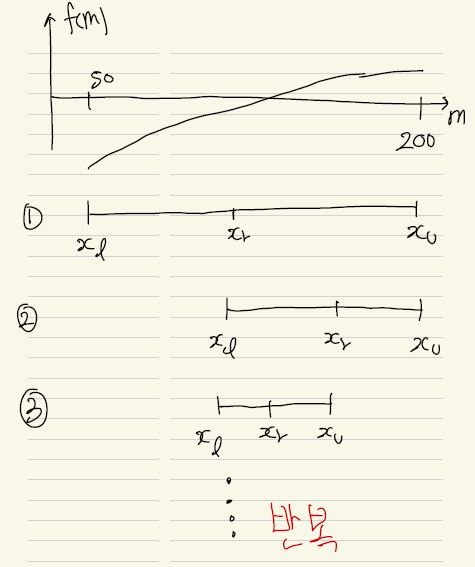 f(m)
50
m
200
①
x_l x_r x_u
②
x_l x_r x_u
③
x_l x_r x_u
반복